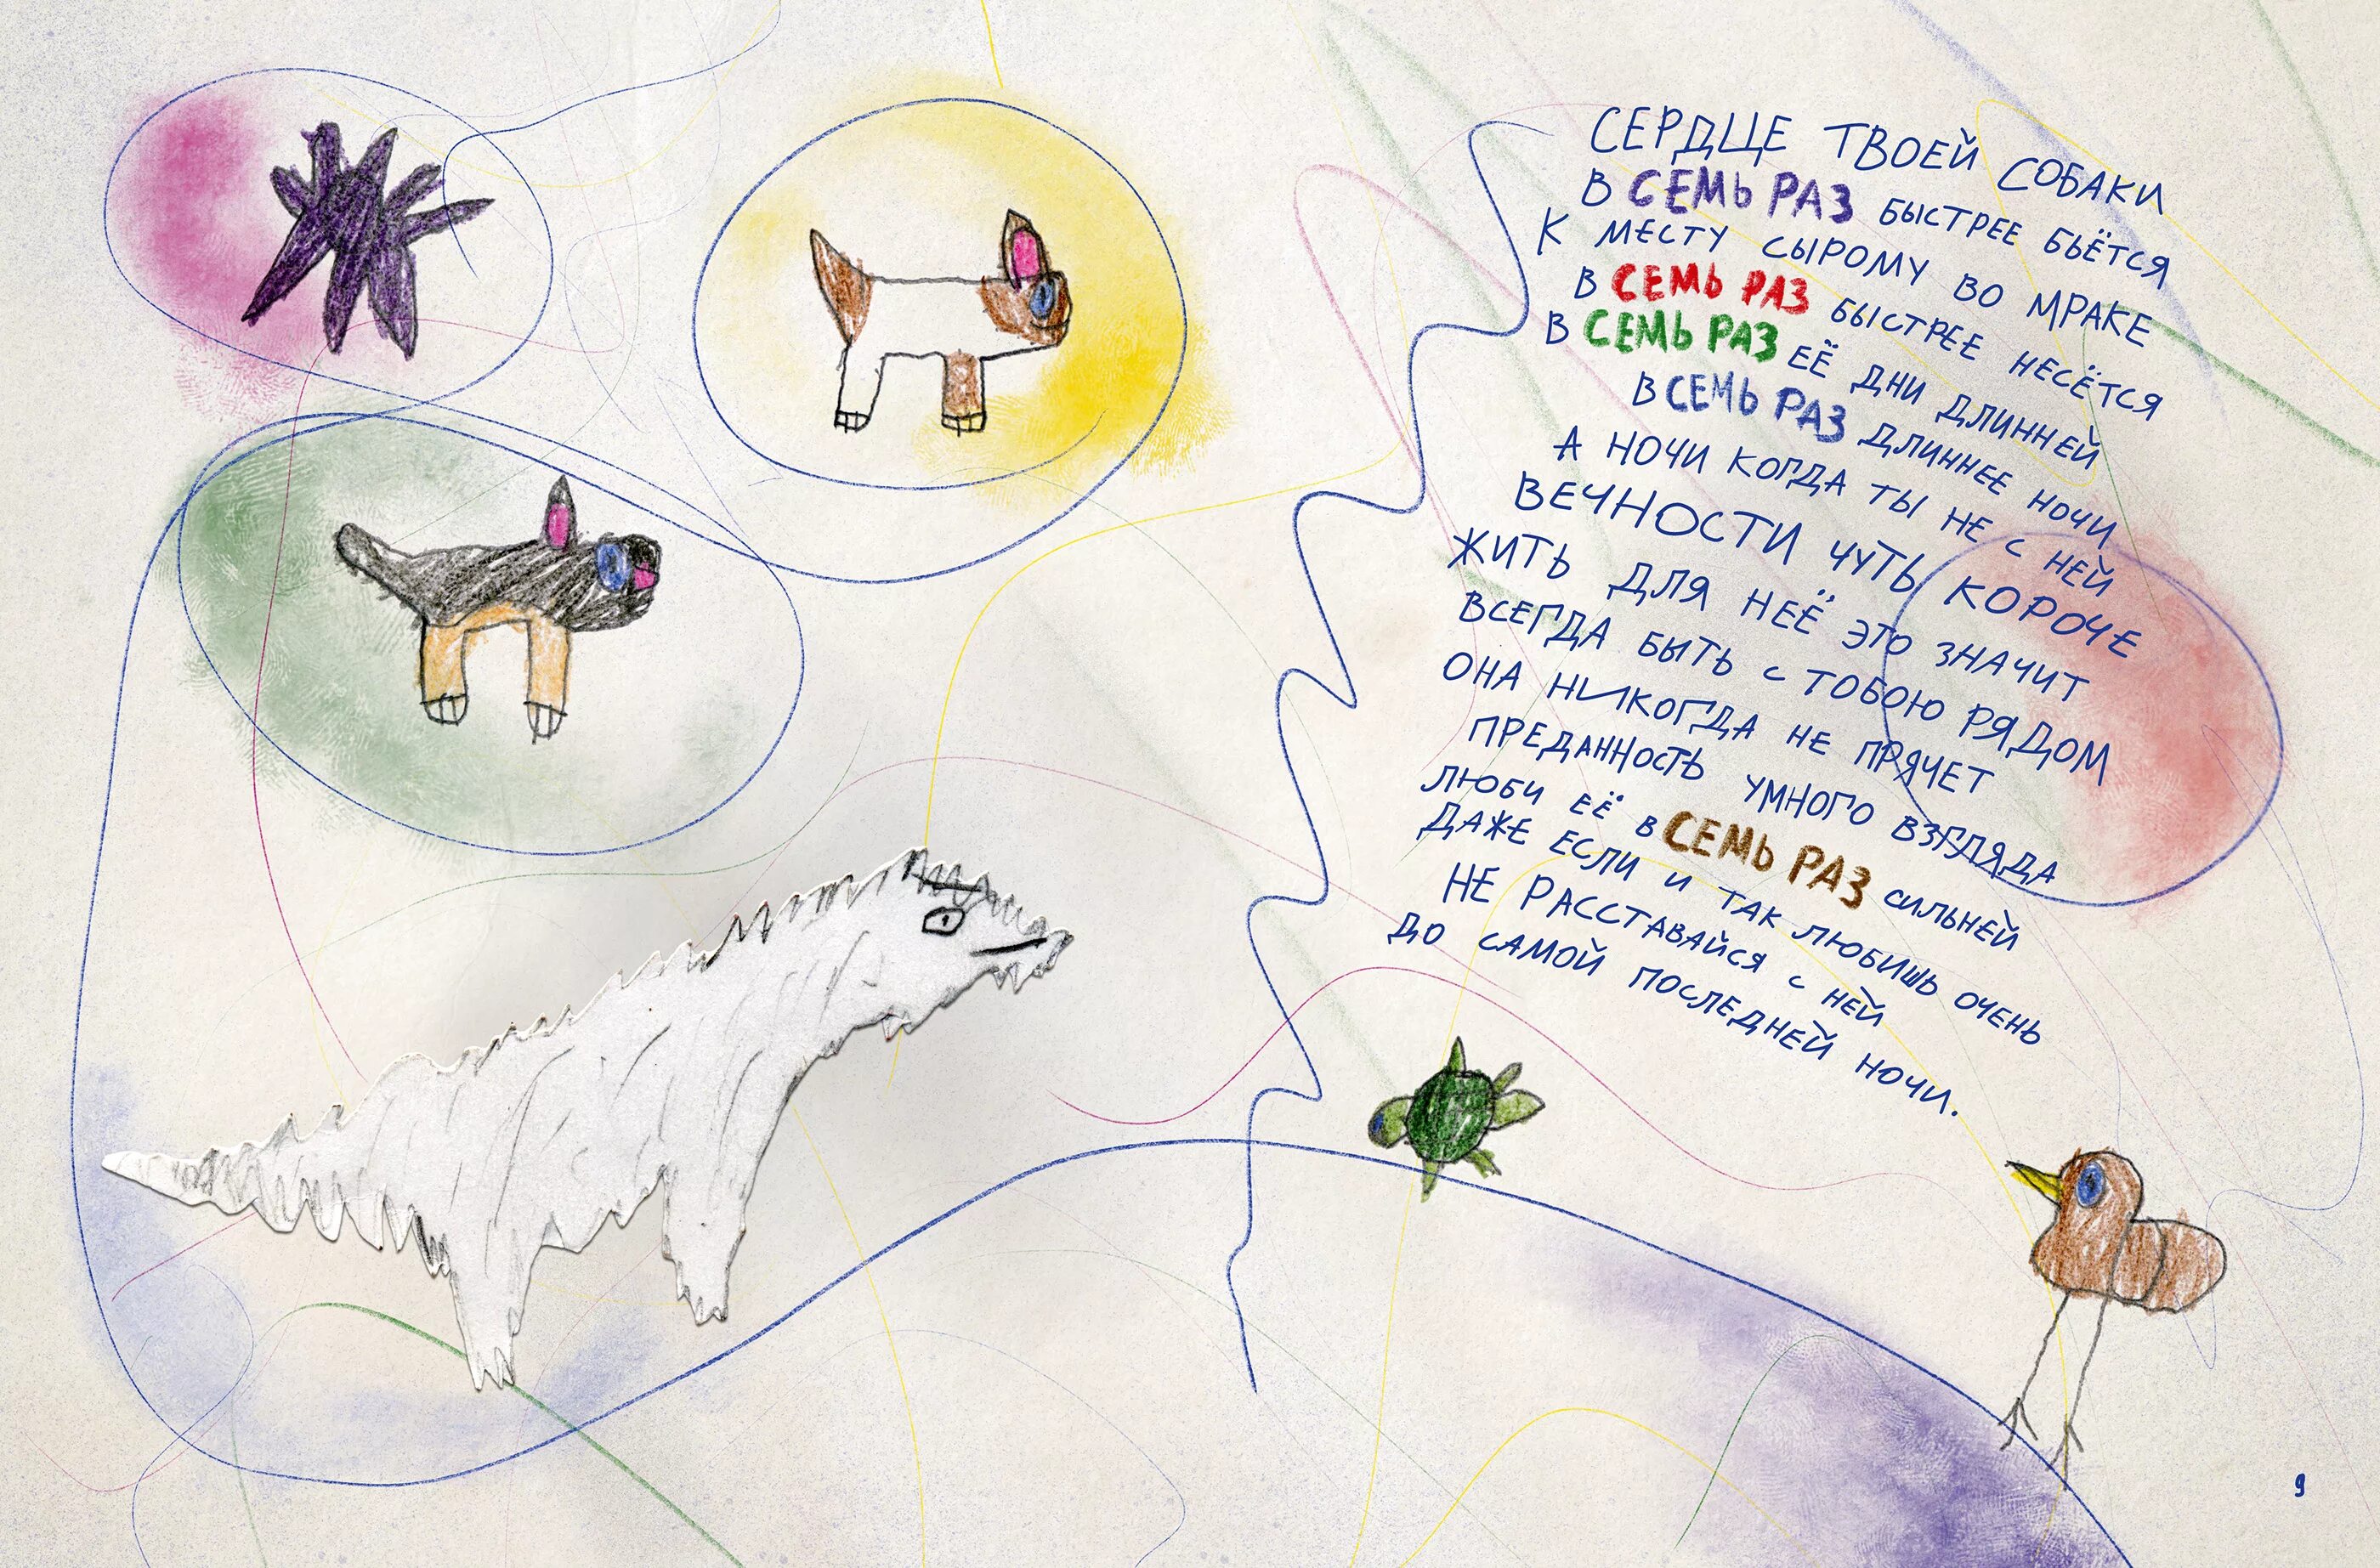 СЕРДЦЕ ТВОЕЙ СОБАКИ
В СЕМЬ РАЗ БЫСТРЕЕ БЬЁТСЯ
К МЕСТУ СЫРОМУ ВО МРАКЕ
В СЕМЬ РАЗ БЫСТРЕЕ НЕСЁТСЯ
В СЕМЬ РАЗ ЕЁ ДНИ ДЛИННЕЙ
В СЕМЬ РАЗ ДЛИННЕЕ НОЧИ
А НОЧИ КОГДА ТЫ НЕ С НЕЙ
ВЕЧНОСТИ ЧУТЬ КОРОЧЕ
ЖИТЬ ДЛЯ НЕЁ ЭТО ЗНАЧИТ
ВСЕГДА БЫТЬ С ТОБОЮ РЯДОМ
ОНА НИКОГДА НЕ ПРЯЧЕТ
ПРЕДАННОСТЬ УМНОГО ВЗГЛЯДА
ЛЮБИ ЕЁ В СЕМЬ РАЗ СИЛЬНЕЙ
ДАЖЕ ЕСЛИ И ТАК ЛЮБИШЬ ОЧЕНЬ
НЕ РАССТАВАЙСЯ С НЕЙ
ДО САМОЙ ПОСЛЕДНЕЙ НОЧИ.
9